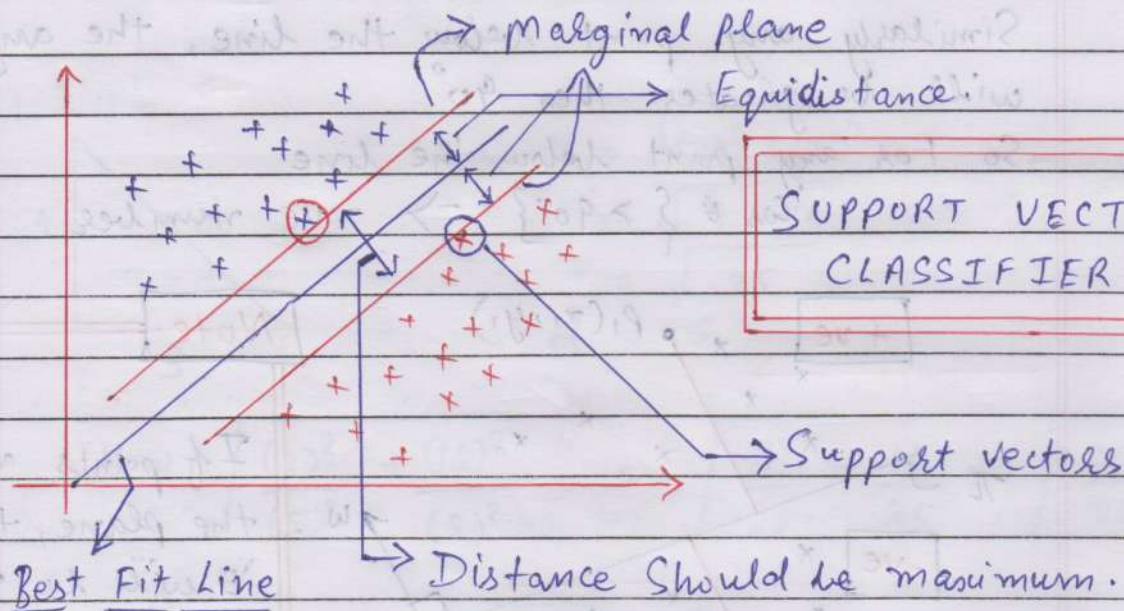 Marginal plane
Equidistance.
SUPPORT VECT
CLASSIFIER
Support vectors
Best Fit Line
Distance Should be maximum.